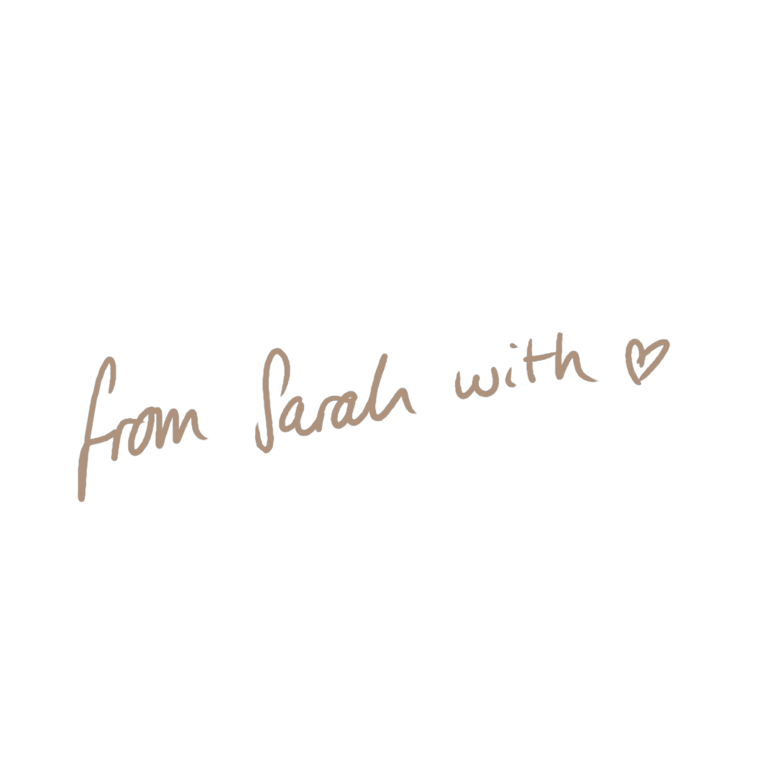 from Sarah with ♡